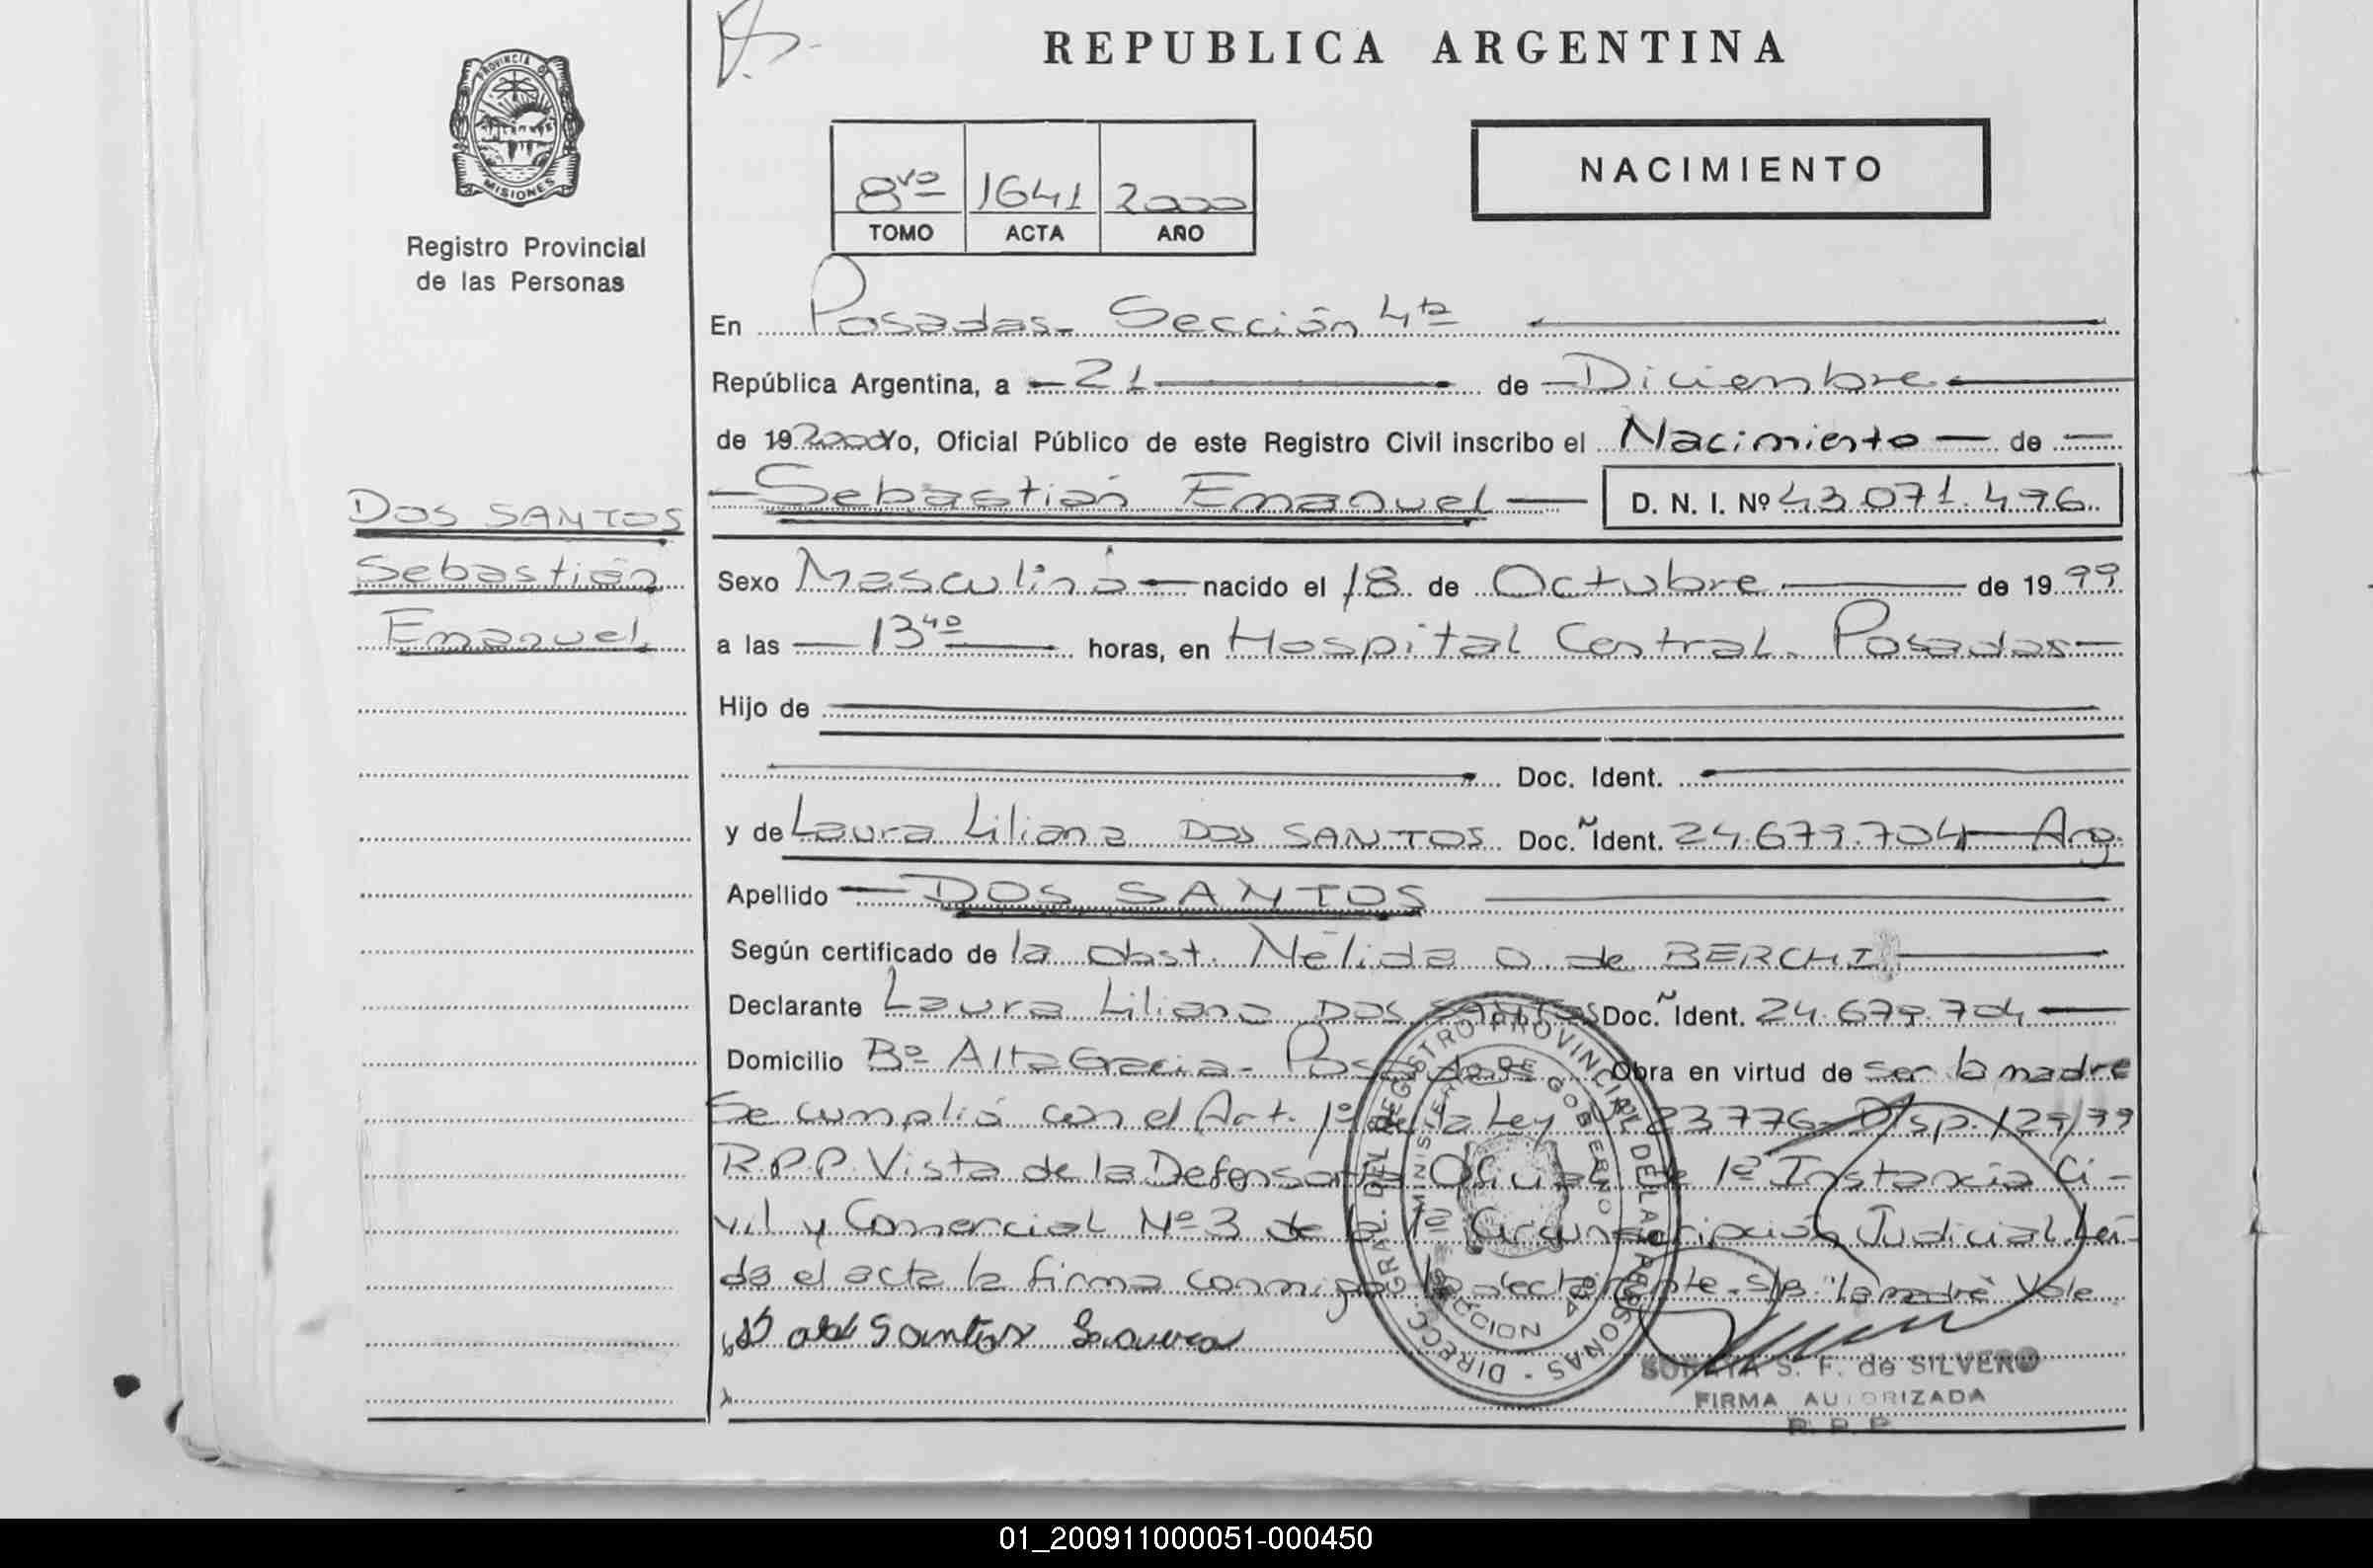 REPUBLICA ARGENTINA
PROVINCIA DE MISIONES
Registro Provincial
de las Personas
NACIMIENTO
8vo 1641 2000
TOMO ACTA AÑO
En Posadas - Sección 4ta
República Argentina, a 21 de Diciembre
de 19 2000 Yo, Oficial Público de este Registro Civil inscribo el Nacimiento de
Sebastián Emanuel D. N. I. Nº 43.071.496
DOS SANTOS
Sebastián
Emanuel
Sexo Masculino nacido el 18 de Octubre de 19 99
a las 13 40 horas, en Hospital Central. Posadas
Hijo de
Doc. Ident.
y de Laura Liliana DOS SANTOS Doc. Ident. 24.679.704 Arg.
Apellido DOS SANTOS
Según certificado de la obst. Nélida O. de BERCHI
Declarante Laura Liliana DOS SANTOS Doc. Ident. 24.679.704
Domicilio Bº Alta Gracia - Posadas Obra en virtud de ser la madre
Se cumplió con el Art. 1º de la Ley Nº 23776 - Disp. 129/99
R.P.P. Vista de la Defensoría Oficial de 1º Instancia Ci-
vil y Comercial Nº 3 de la 1ª Circunscripción Judicial. Leí-
da el acta la firma conmigo la declarante. s/b "la madre" Vale
Dos Santos Laura
DIRECC. GRAL. DEL REGISTRO PROVINCIAL DE LAS PERSONAS
MINISTERIO DE GOBIERNO
S. F. de SILVERO
FIRMA AUTORIZADA
R. P. P.
01_200911000051-000450